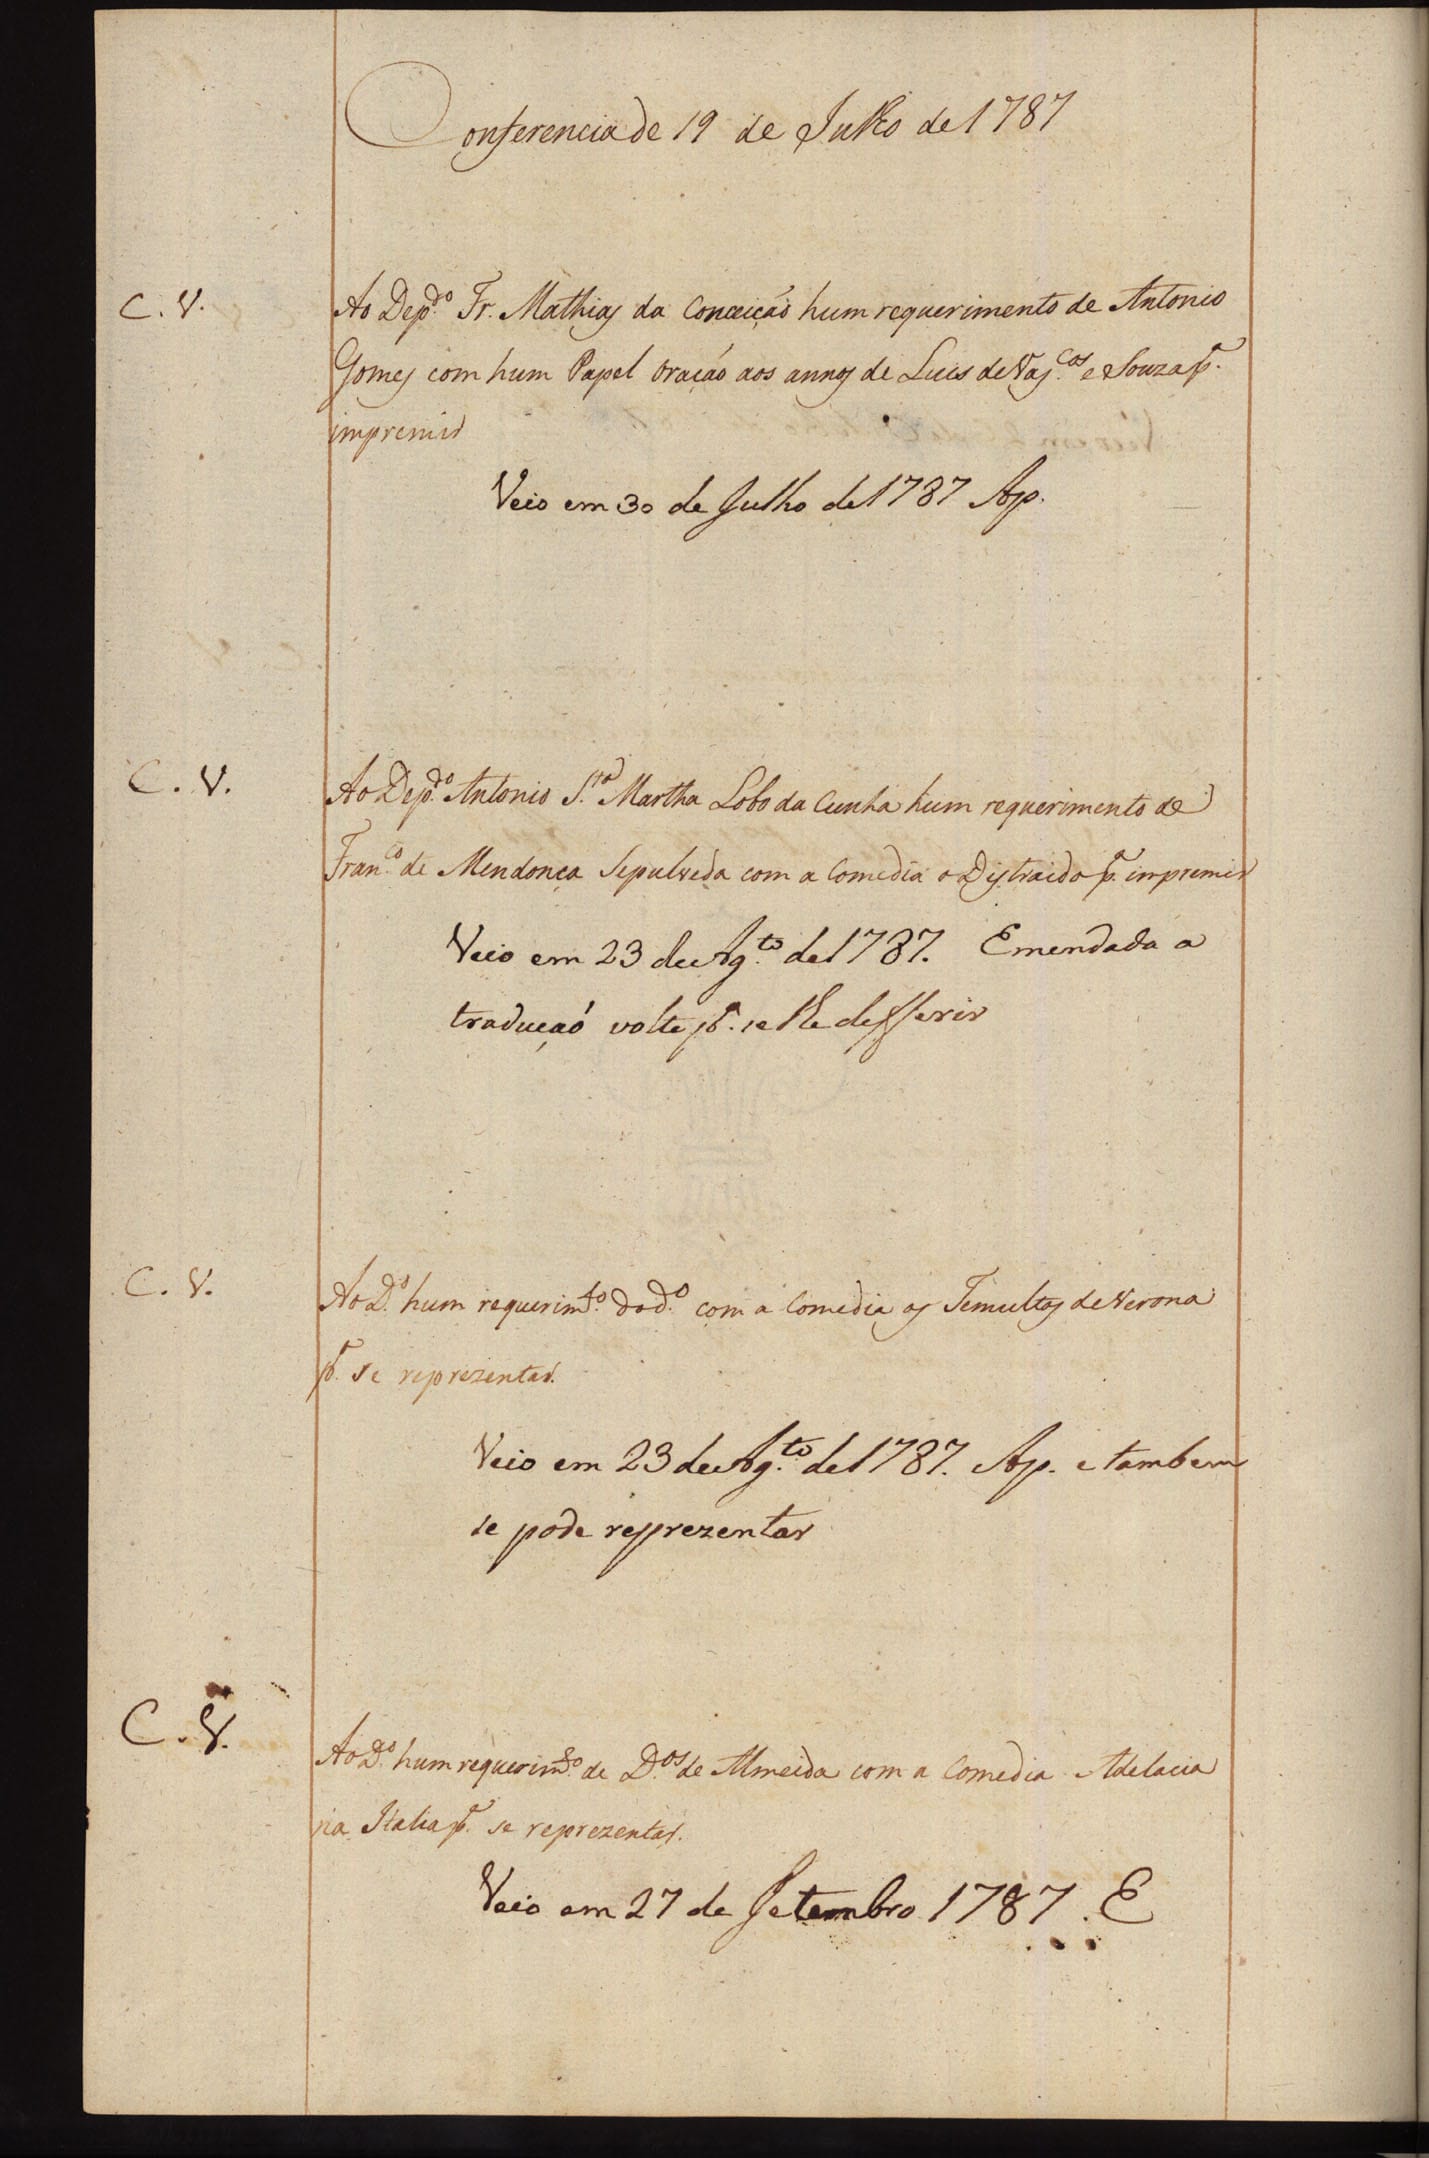 Conferencia de 19 de Julho de 1787
C. V.
Ao Dep.do Fr. Mathias da Conceição hum requerimento de Antonio
Gomes com hum Papel Oração aos annos de Luis de Vas.cos e Souza p.a
imprimir
Veio em 30 de Julho de 1787 Ap.
C. V.
Ao Dep.do Antonio S.ta Martha Lobo da Cunha hum requerimento de
Fran.co de Mendonça Sepulveda com a Comedia o Distraido p.a imprimir
Veio em 23 de Ag.to de 1787. Emendada a
traduçaó volte p.a se lhe defferir
C. V.
Ao D.o hum requerim.to do d.o com a Comedia os Temultos de Verona
p.a se reprezentar.
Veio em 23 de Ag.to de 1787. Ap. e tambem
se pode reprezentar
C. V.
Ao D.o hum requerim.to de D.os de Almeida com a Comedia Adelacia
na Italia p.a se reprezentar.
Veio em 27 de Setembro 1787. E